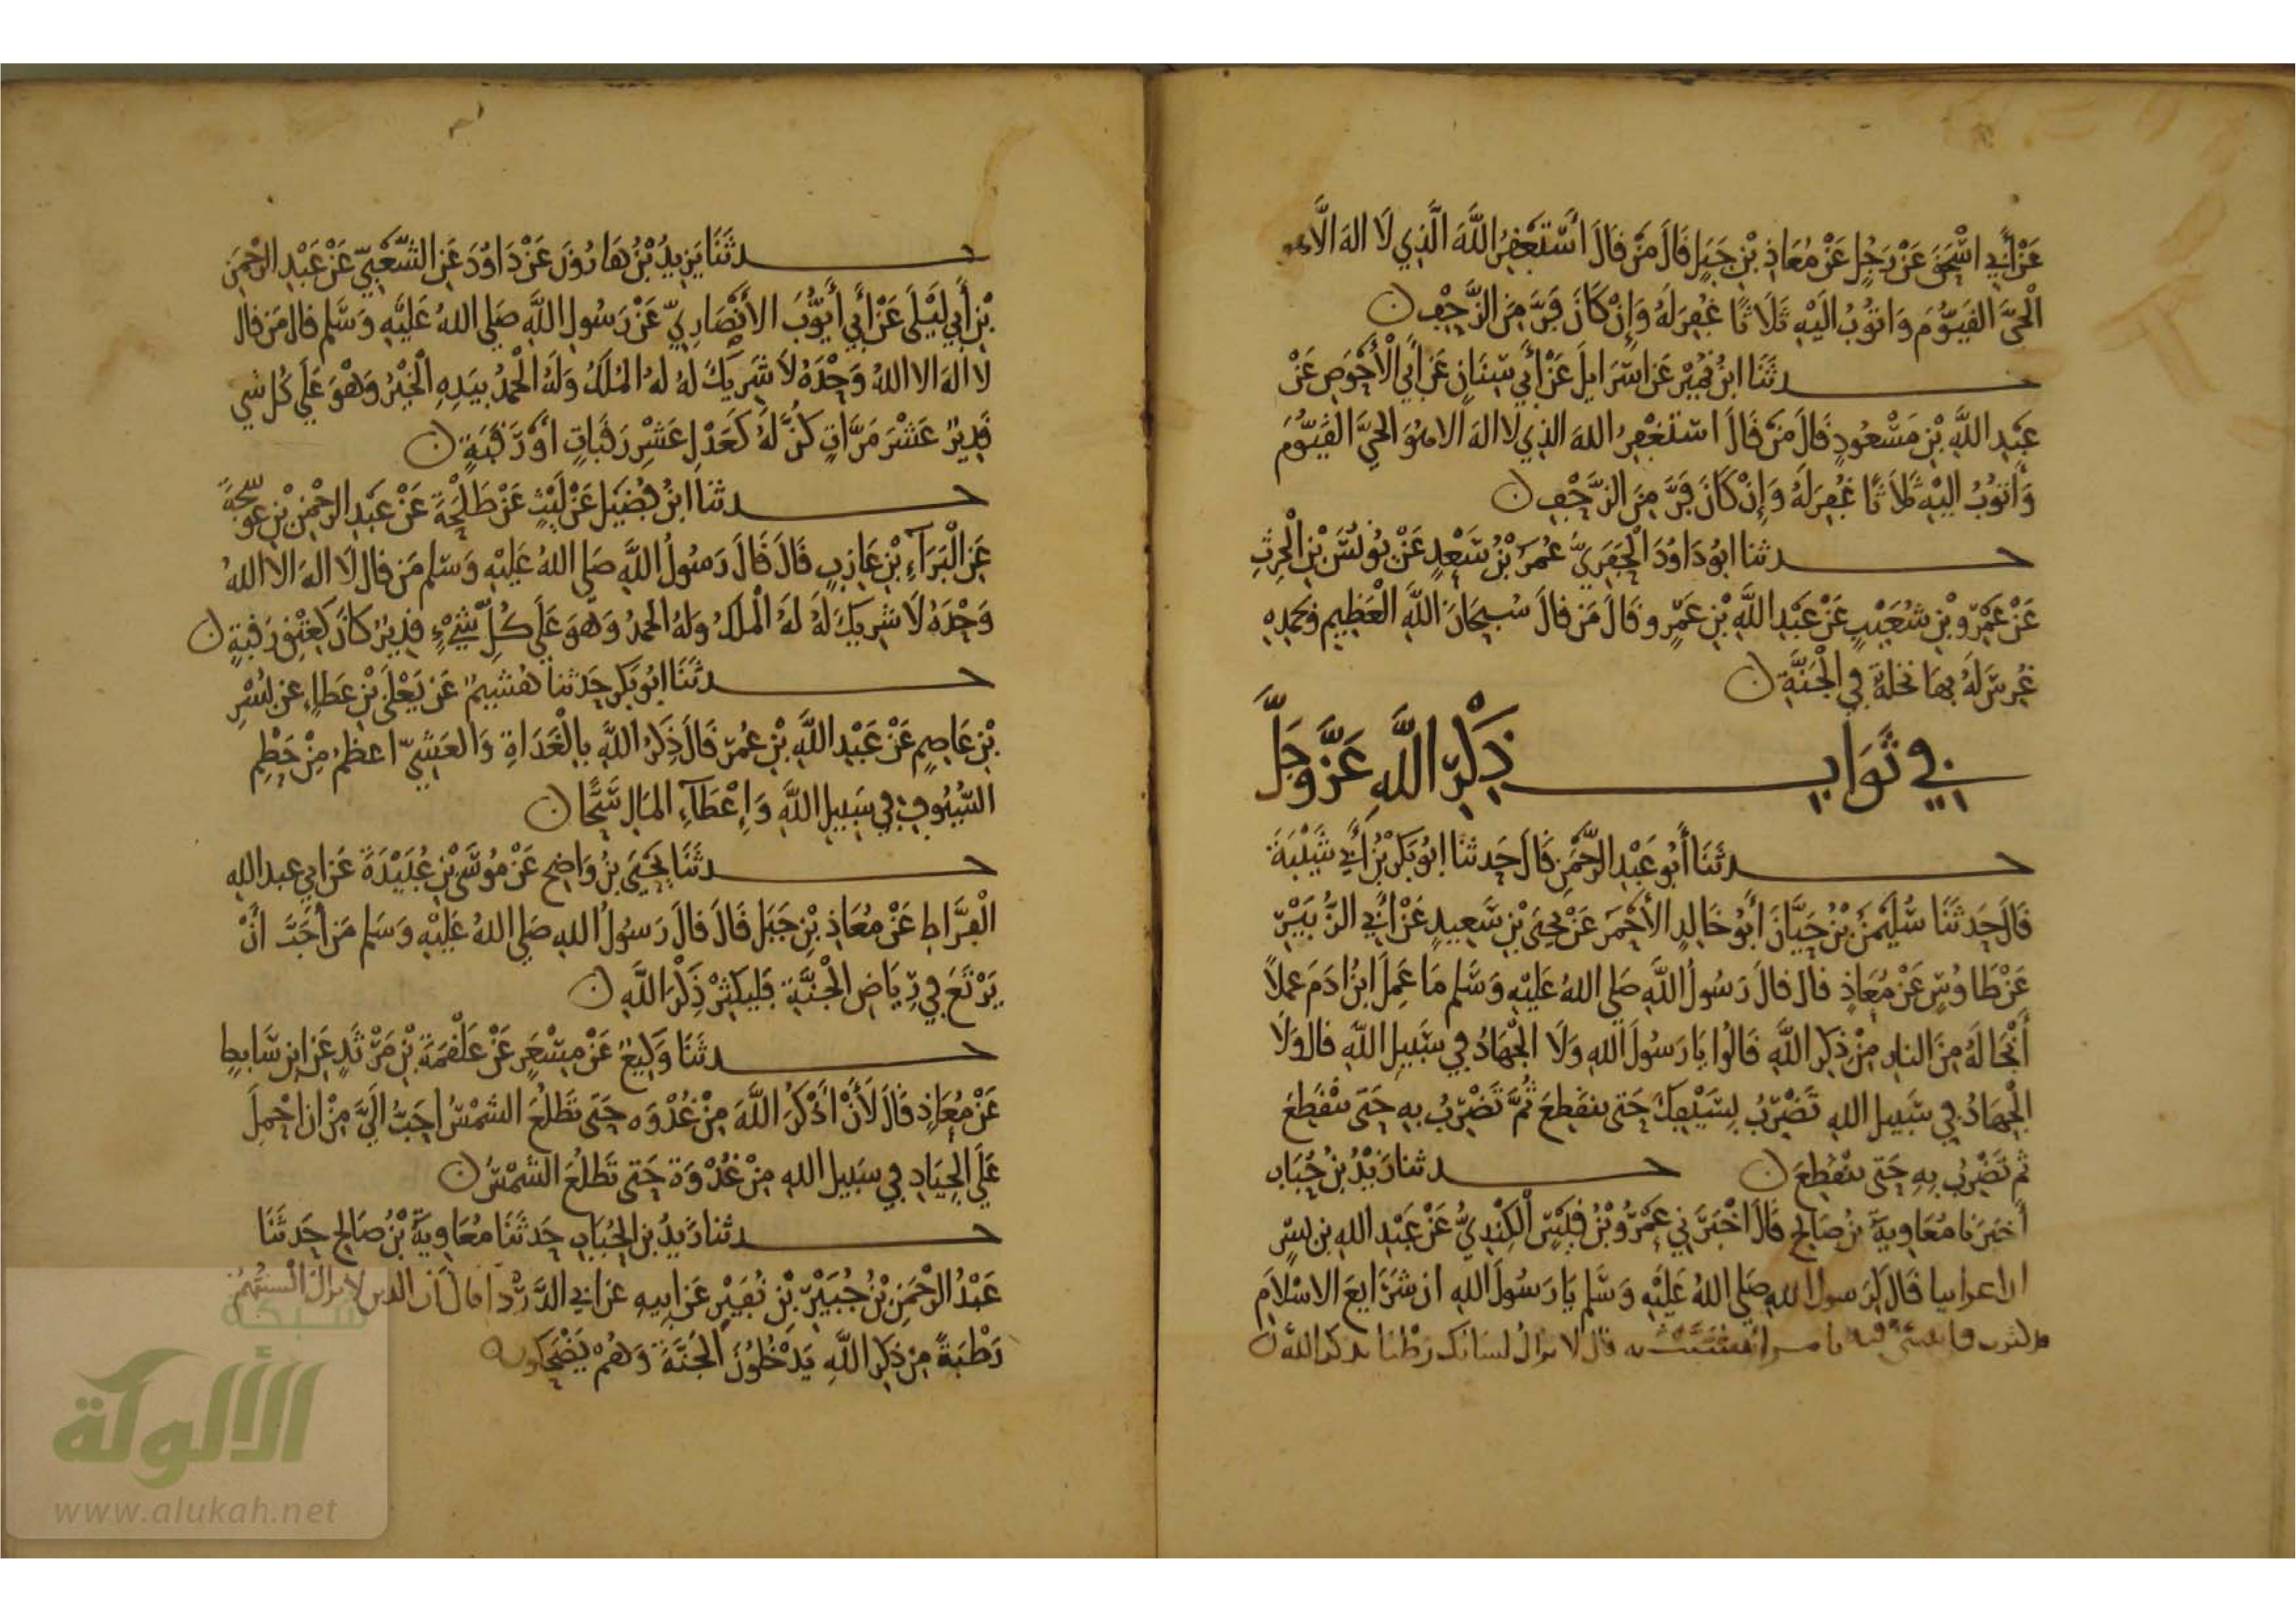 عَنْ أَبِي اسْحَقَ عَنْ رَجُلٍ عَنْ مُعَاذِ بْنِ جَبَلٍ قَالَ مَنْ قَالَ أَسْتَغْفِرُ اللَّهَ الَّذِي لَا اله الَّا هو
الْحَيَّ القَيُّومَ وَاتوبُ الَيْهِ ثَلَاثًا غُفِرَ لَهُ وَإِنْ كَانَ فَرَّ مِنَ الزَّحْفِ ن
حـدثَنَا ابْنُ نُمَيْر عَن اسْرَايلَ عَنْ أَبِي سِنَانٍ عَن أَبِي الْأَحْوَصِ عَنْ
عَبْدِ اللَّهِ بْنِ مَسْعُودٍ قَالَ مَنْ قَالَ اسْتَغْفِرُ اللهَ الذِي لا اله الا هُوَ الحَيَّ القَيُّومَ
وَأَتوبُ الَيْهِ ثَلَاثًا غُفِرَ لَهُ وَإِنْ كَانَ فَرَّ مِنَ الزَّحْفِ ن
حـدثنا ابُو دَاوُدَ الْحَفَرِيُّ عُمَرُ بْنُ سَعْدٍ عَنْ يُونُسَ بْنِ الْحرِثِ
عَنْ عَمْرِو بْنِ شُعَيْبٍ عَنْ عَبْدِ اللَّهِ بْنِ عَمْرٍو قَالَ مَن قالَ سُبحَانَ اللَّهِ الْعَظِيمِ وَبحمدِهِ
غُرِسَ لَهُ بِهَا نخلة في الْجَنَّةِ ن
في ثَوَابِ ذِكْرِ اللَّهِ عَزَّ وَجَلَّ
حـدثَنَا أَبُو عَبْدِ الرَّحْمَنِ قَالَ حَدثنَا ابُو بَكْرِ بْنُ أَبِي شَيْبَةَ
قَالَ حَدثَنَا سُلَيْمَنُ بْنُ حَيَّانَ أَبُو خَالِدٍ الأَحْمَرَ عَنْ يحيَى بْنِ سَعِيدٍ عَنْ أَبِي الزُّبَيْرِ
عَنْ طَاوُسٍ عَنْ مُعَاذٍ قال قالَ رَسُولُ اللَّهِ صَلى اللهُ عَلَيْهِ وَسَّلم مَا عَمِلَ ابْنُ ادَمَ عملاً
أَنْجَا لَهُ مِنَ النارِ مِنْ ذِكرِ اللَّهِ قَالُوا يَا رَسُولَ اللهِ وَلَا الْجِهَادُ فِي سَبِيلِ اللَّهِ قال وَلَا
الْجِهَادُ فِي سَبِيلِ اللهِ تَضْرِبُ بِسَيْفِكَ حَتى ينقَطِعَ ثُمَّ تَضْرِبُ بِهِ حَتى ينْقَطِعَ
ثم تَضْرِبُ بِهِ حَتى ينْقَطِعَ ن حـدثنا زَيْدُ بْنُ حُبَابٍ
أخبَرَنا مُعَاوِيةَ بْنُ صَالِحٍ قَالَ اخْبَرَنِي عَمْرُو بْنُ قَيْسٍ الْكِنْدِيُّ عَنْ عَبْدِ اللهِ بن بسرٍ
ان اعرابيا قَالَ لِرَسولِ اللهِ صَلى اللهُ عَلَيْهِ وَسَّلم يَا رَسُولَ اللهِ ان شَرَايعَ الاسْلَامِ
قال لا يزالُ لسَانك رَطْبًا بذكر الله ن
حـدثَنَا يَزِيدُ بْنُ هَارُونَ عَنْ دَاوُدَ عَنِ الشَّعْبِيِّ عَنْ عَبْدِ الرَّحْمَنِ
بْنِ أَبِي لَيْلَى عَنْ أَبِي أَيُّوبَ الأَنْصَارِيِّ عَنْ رَسُولِ اللَّهِ صَلى اللهُ عَلَيْهِ وَسَّلم قال مَن قال
لا الهَ الا اللهُ وَحْدَهُ لَا شَرِيكَ لَهُ لَهُ المُلْكُ وَلَهُ الْحَمدُ بيَدِهِ الْخَيْرُ وَهْوَ عَلَى كُل شي
قَدِيرٌ عَشْرَ مَرَّاتٍ كُنَّ لَهُ كَعَدْلِ عَشْرِ رَقَبَاتٍ أَوْ رَقَبَةٍ ن
حـدثنا ابْنُ فُضَيل عَنْ لَيْثٍ عَنْ طَلْحَةَ عَنْ عَبْدِ الرَحْمَنِ بْنِ عوسَجَةَ
عَنِ الْبَرَآءِ بْنِ عَازِبٍ قَالَ قَالَ رَسُولُ اللَّهِ صَلى اللهُ عَلَيْهِ وَسَّلم مَن قال لَا الهَ الا اللهُ
وَحْدَهُ لَا شَرِيكَ لَهُ لَهُ الْملكُ وَلهُ الحمدُ وَهوَ عَلَى كُلِّ شَيْءٍ قدِيرٌ كانَ كَعِتْقِ رَقبةٍ ن
حـدثَنَا ابُو بَكرٍ حَدثنا هُشَيمٌ عَنْ يَعْلَى بْنِ عَطاءٍ عن بُسْرِ
بْنِ عَاصِمٍ عَنْ عَبْدِ اللَّهِ بْنِ عُمَرَ قَالَ ذِكْرُ اللَّهِ بِالْغَدَاةِ وَالعَشِيِّ اعظمُ مِنْ حَطْمِ
السُّيُوفِ فِي سَبِيلِ اللَّهِ وَإِعْطَآءِ المَالِ سَحًّا ن
حـدثَنَا يَحْيَى بنُ وَاضِحٍ عَنْ مُوسَى بْنِ عُبَيْدَةَ عَن ابي عبد الله
الْقَرَّاظِ عَنْ مُعَاذِ بْنِ جَبَل قَالَ قالَ رَسُولُ اللهِ صَلى اللهُ عَلَيْهِ وَسَلم مَن أَحَبَّ أَنْ
يَرْتَعَ فِي رِيَاضِ الْجَنَّةِ فَليكثِرْ ذِكْرَ اللَّهِ ن
حـدثَنَا وَكِيعٌ عَنْ مِسْعَرٍ عَنْ عَلْقَمَةَ بْنِ مَرْثَدٍ عَنِ ابنِ سَابطٍ
عَنْ مُعَاذٍ قَالَ لَأَنْ أَذْكُرَ اللَّهَ مِنْ غُدْوَه حَتى تَطلُعَ الشَمْسُ احَبُّ الَيَّ مِنْ ان احْمِلَ
عَلَى الجِيَادِ فِي سَبِيلِ اللهِ مِنْ غُدْوَة حَتى تَطلُعَ الشَمْسُ ن
حـدثنا زَيدُ بن الْحُبَابِ حَدثَنَا مُعَاوِيَةُ بْنُ صَالِحٍ حَدثَنَا
عَبْدُ الرَّحْمَنِ بْنُ جُبَيْرِ بْنِ نُفَيْرٍ عَن ابِيهِ عَن ابي الدَّرْدا قال ان الذين لا يزالُ السنتهُمْ
رَطْبَةً مِنْ ذِكرِ اللَّهِ يَدْخُلُونَ الْجَنَّةَ وَهُمْ يَضْحَكون
شبكة
الألوكة
www.alukah.net